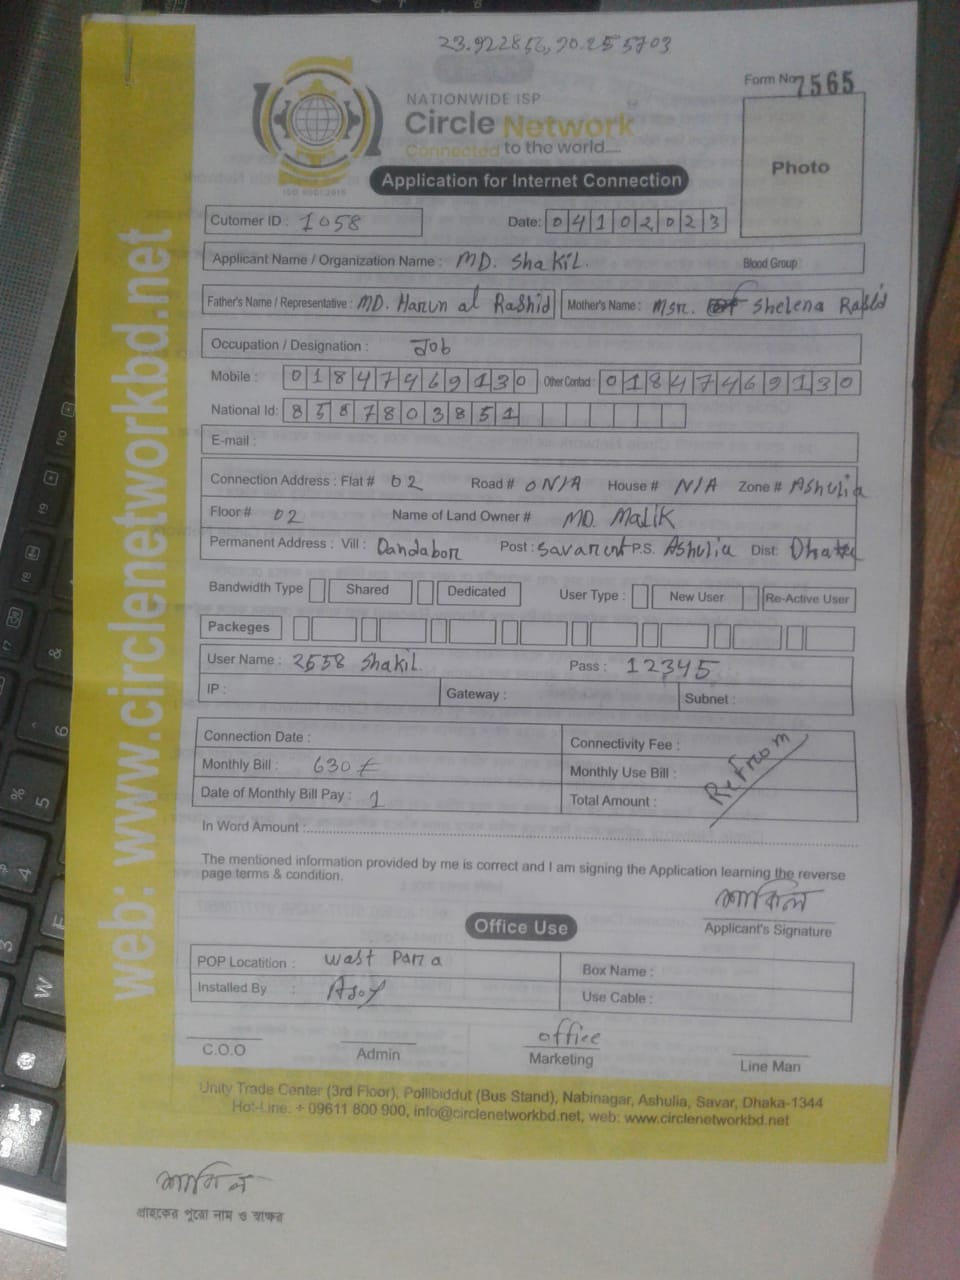 23.922856, 90.255703
Form No 7565
NATIONWIDE ISP
Circle Network
Connected to the world....
ISO 9001:2015
Photo
Application for Internet Connection
Cutomer ID : 1058 Date: 04102023
Applicant Name / Organization Name : MD. ShakiL. Blood Group :
Father's Name / Representative : MD. Harun al Rashid Mother's Name : Msr. Shelena Rashid
Occupation / Designation : Job
Mobile : 01847969130 Other Contact : 01847469130
National Id: 8587803851
E-mail :
Connection Address : Flat # 02 Road # 0N/A House # N/A Zone # Ashulia
Floor # 02 Name of Land Owner # MD. Malik
Permanent Address : Vill : Dandabor Post : Savar P.S. Ashulia Dist: Dhaka
Bandwidth Type Shared Dedicated User Type : New User Re-Active User
Packeges
User Name : 2558 Shakil. Pass : 12345
IP : Gateway : Subnet :
Connection Date : Connectivity Fee :
Monthly Bill : 630 Monthly Use Bill :
Date of Monthly Bill Pay : 1 Total Amount :
In Word Amount :
The mentioned information provided by me is correct and I am signing the Application learning the reverse
page terms & condition.
শাকিল
Applicant's Signature
Office Use
POP Locatition : West Para Box Name :
Installed By : Ajoy Use Cable :
office
C.O.O Admin Marketing Line Man
Unity Trade Center (3rd Floor), Pollibiddut (Bus Stand), Nabinagar, Ashulia, Savar, Dhaka-1344
Hot-Line: + 09611 800 900, info@circlenetworkbd.net, web: www.circlenetworkbd.net
web: www.circlenetworkbd.net
শাকিল
গ্রাহকের পুরো নাম ও স্বাক্ষর